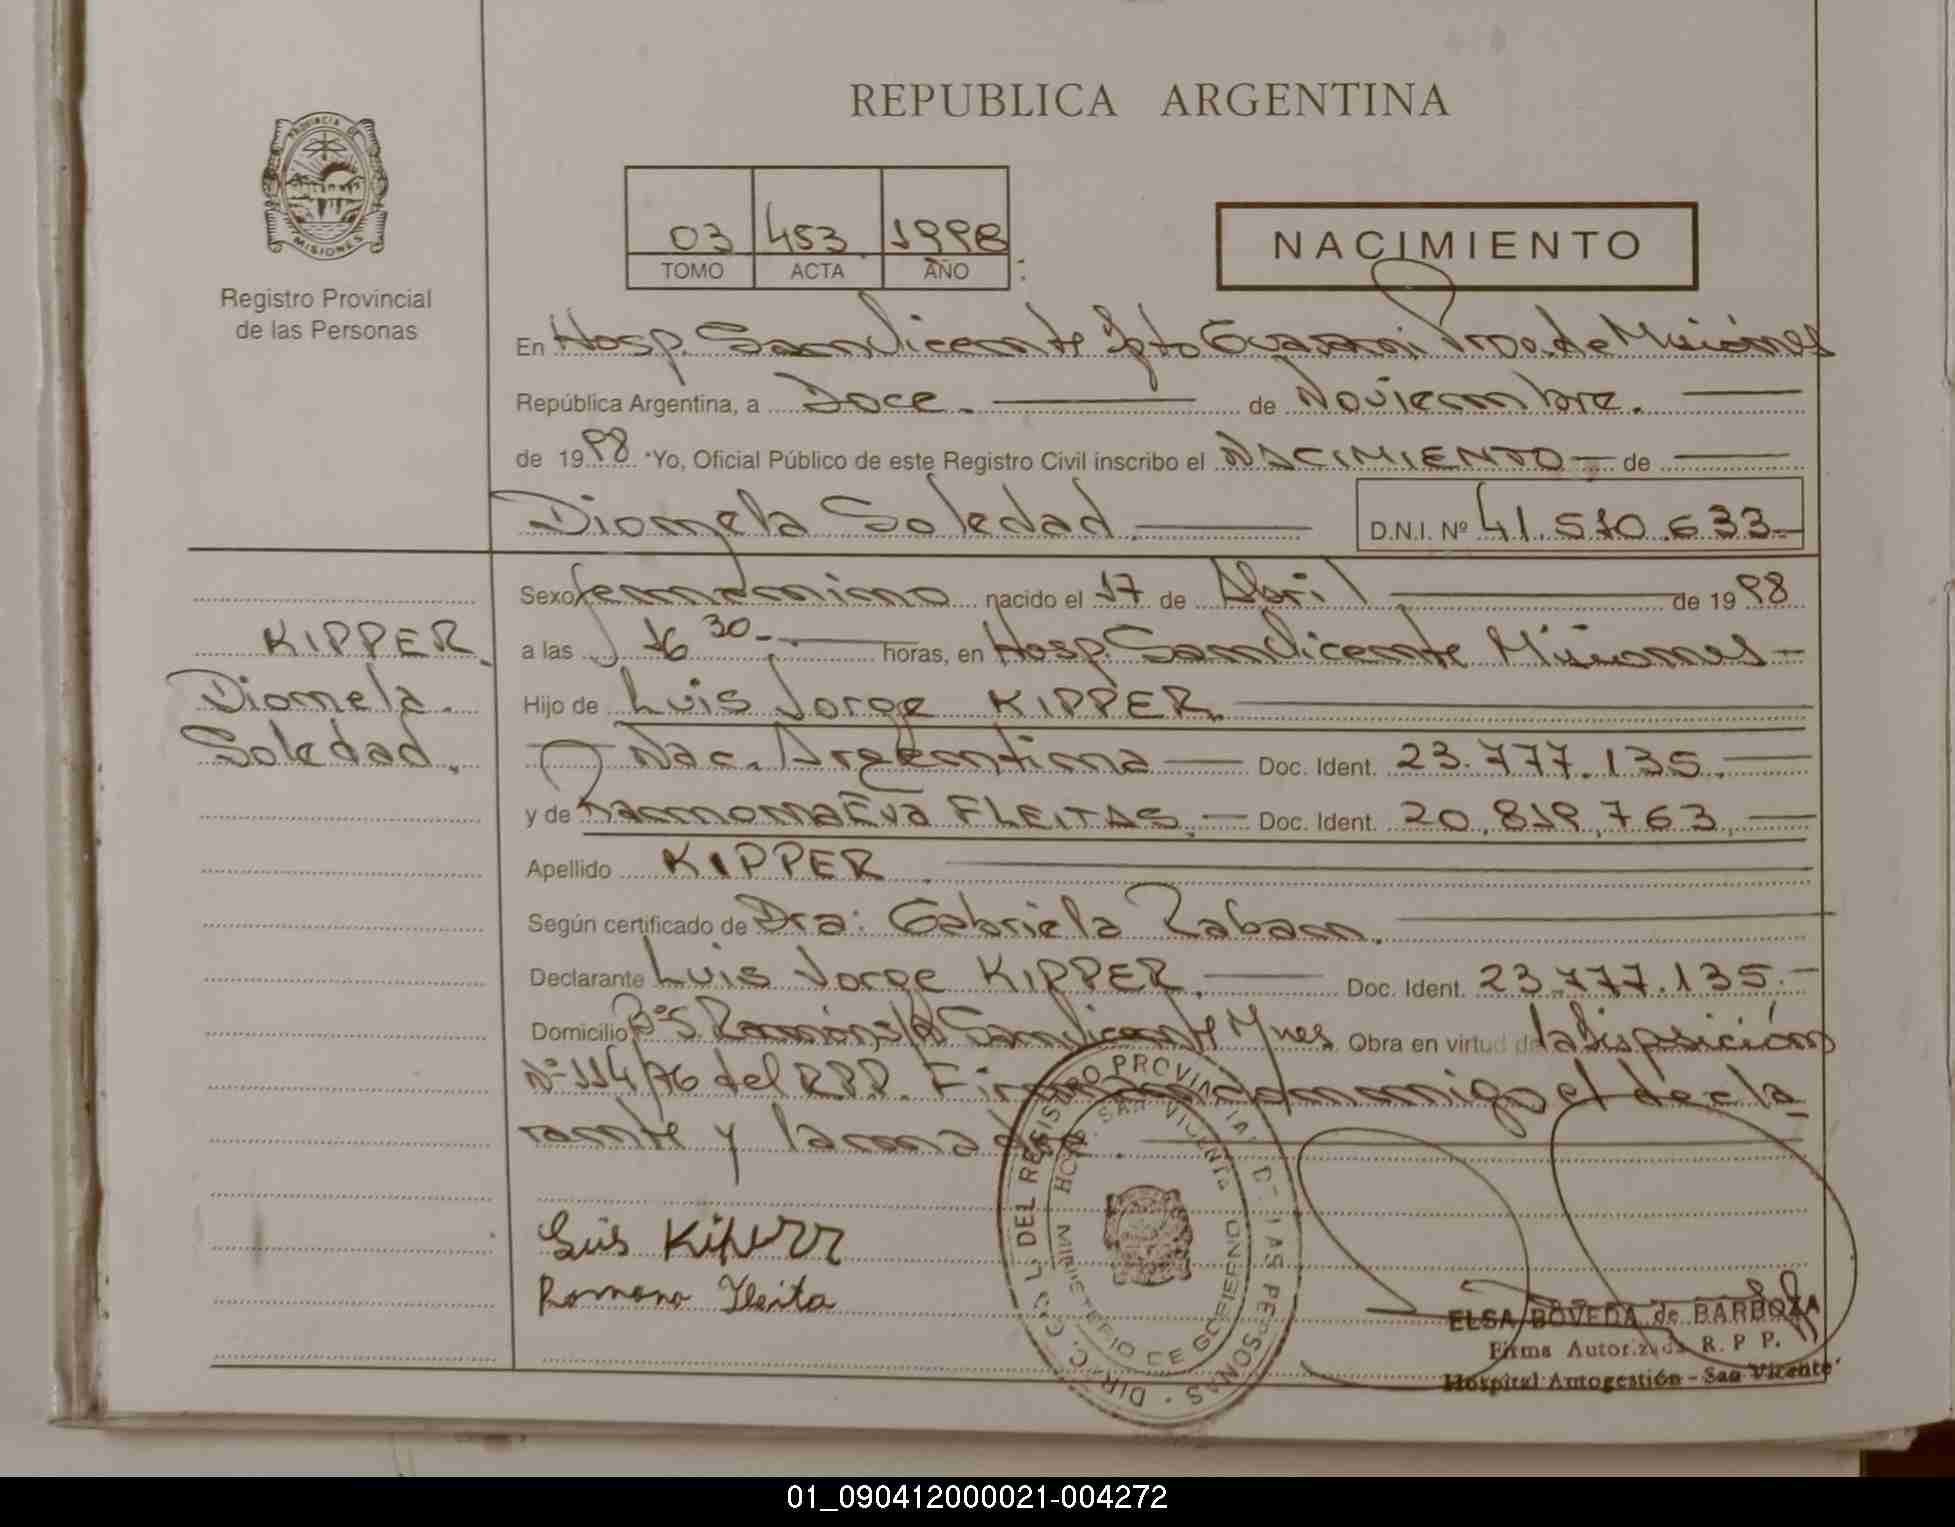 REPUBLICA ARGENTINA
PROVINCIA DE
MISIONES
Registro Provincial
de las Personas
03 453 1998
TOMO ACTA AÑO
NACIMIENTO
En Hosp. San Vicente Dpto Guarani Prov. de Misiones
República Argentina, a Doce. de Noviembre.
de 1998 Yo, Oficial Público de este Registro Civil inscribo el NACIMIENTO de
Diomela Soledad. D.N.I. Nº 41.510.633
KIPPER
Diomela
Soledad.
Sexo femenino nacido el 17 de Abril de 1998
a las 16 30 horas, en Hosp. San Vicente Misiones
Hijo de Luis Jorge KIPPER
Nac. Argentina Doc. Ident. 23.777.135.
y de Ramona Eva FLEITAS. Doc. Ident. 20.819.763.
Apellido KIPPER
Según certificado de Dra: Gabriela Zaban.
Declarante Luis Jorge KIPPER. Doc. Ident. 23.777.135.
Domicilio Bº S. Ramón s/n San Vicente Mnes Obra en virtud de la Disposición
Nº 114/76 del R.P.P. Firman conmigo el decla
rante y la madre.
DIREC. GRAL. DEL REGISTRO PROVINCIAL DE LAS PERSONAS
HOSP. SAN VICENTE
MINISTERIO DE GOBIERNO
Luis Kiperr
Romona Fleita
ELSA BOVEDA de BARBOZA
Firma Autorizada R. P P.
Hospital Autogestión - San Vicente
01_090412000021-004272